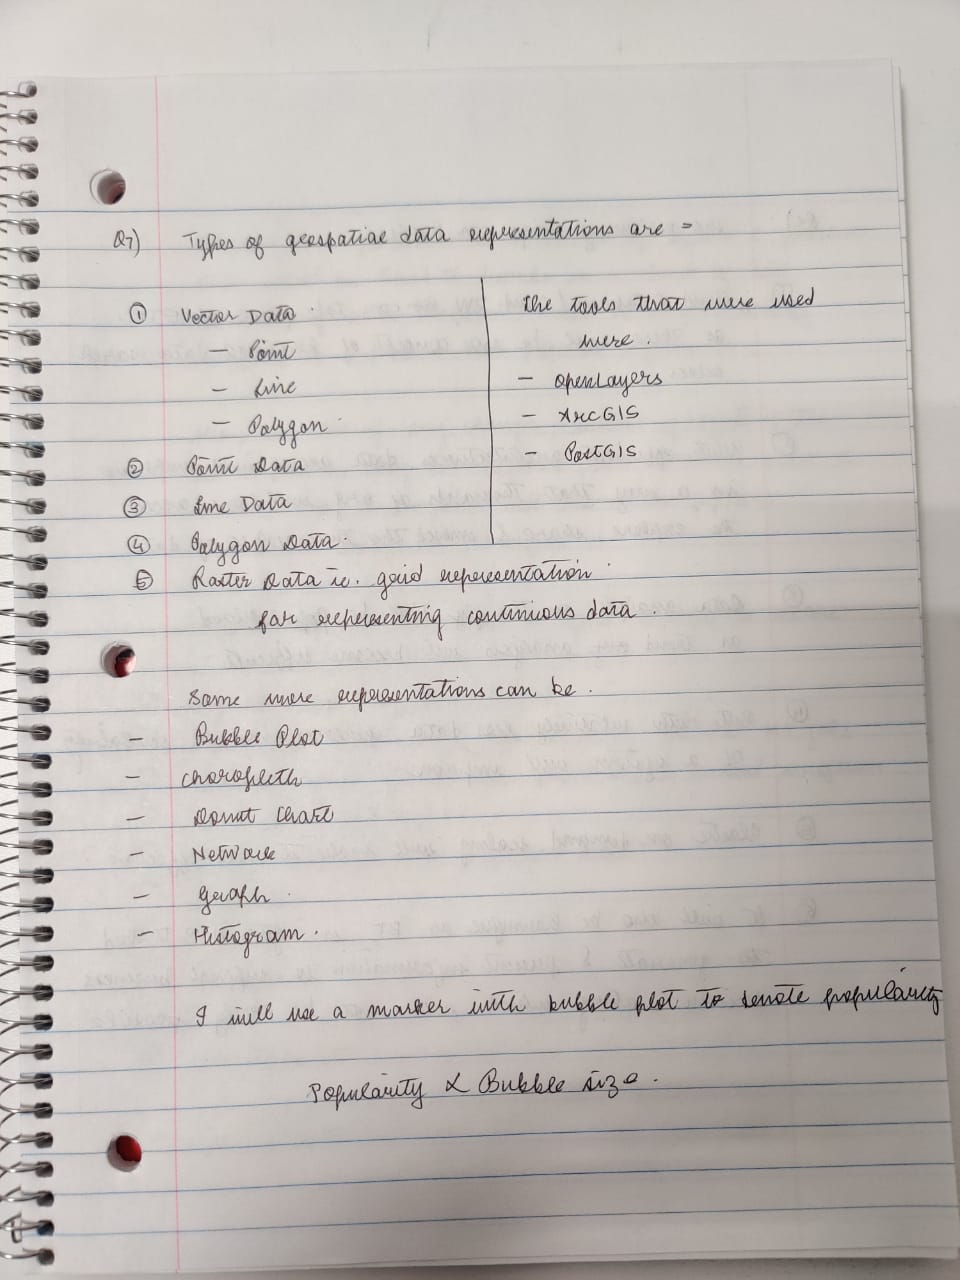 Q7) Types of geospatial data representations are =
① Vector Data.
- Point
- Line
- Polygon.
② Point Data
③ Line Data
④ Polygon Data.
⑤ Raster Data ie. grid representation
for representing continuous data.
The tools that were used
were.
- OpenLayers
- ArcGIS
- PostGIS
Some more representations can be.
- Bubble Plot
- choropleth
- Donut Chart
- Network
- graph.
- Histogram.
I will use a marker with bubble plot to denote popularity
Popularity ∝ Bubble size.